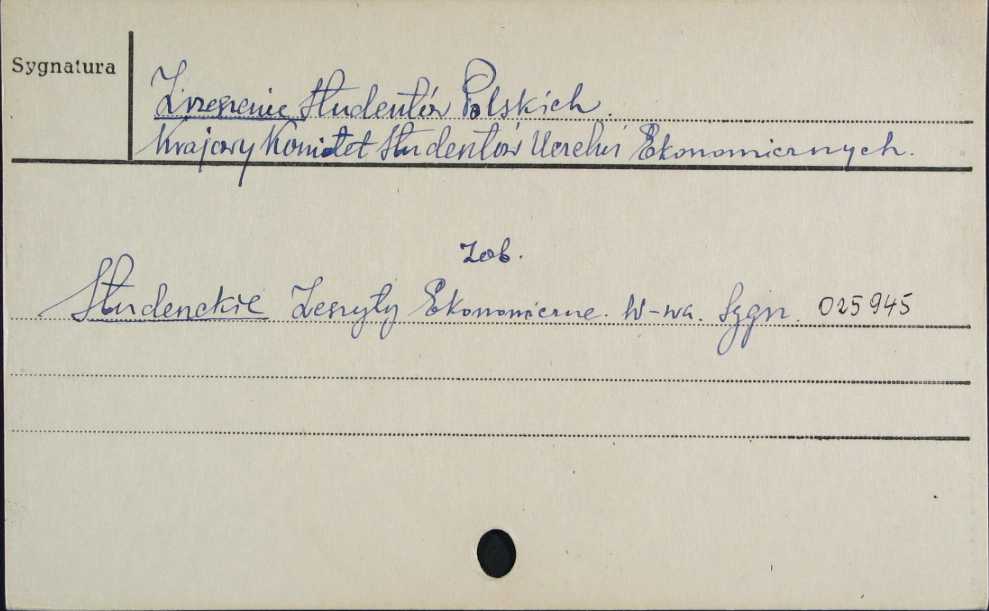 Sygnatura
Zrzeszenie Studentów Polskich.
Krajowy Komitet Studentów Uczelni Ekonomicznych.
zob.
Studenckie Zeszyty Ekonomiczne. W-wa. Sygn. 025945